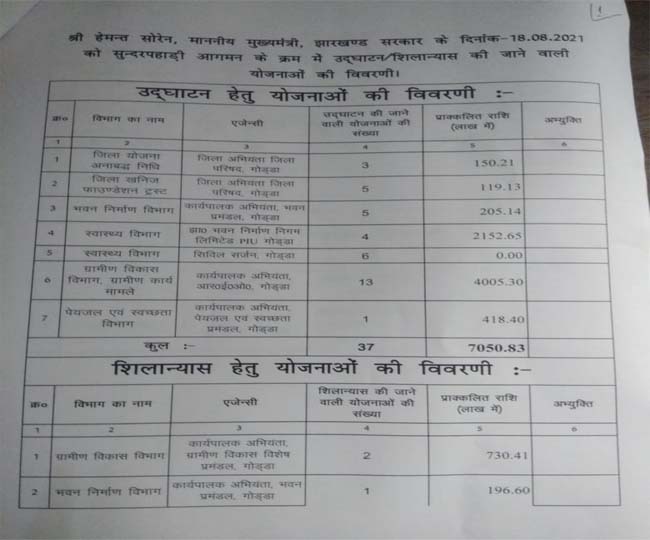 1
श्री हेमन्त सोरेन, माननीय मुख्यमंत्री, झारखण्ड सरकार के दिनांक-18.08.2021
को सुन्दरपहाड़ी आगमन के क्रम में उद्घाटन/शिलान्यास की जाने वाली
योजनाओं की विवरणी।
उद्घाटन हेतु योजनाओं की विवरणी :-
क्र० विभाग का नाम एजेन्सी उद्घाटन की जाने वाली योजनाओं की संख्या प्राक्कलित राशि (लाख में) अभ्युक्ति
1 2 3 4 5 6
1 जिला योजना अनाबद्ध निधि जिला अभियंता जिला परिषद, गोड्डा 3 150.21
2 जिला खनिज फाउण्डेशन ट्रस्ट जिला अभियंता जिला परिषद, गोड्डा 5 119.13
3 भवन निर्माण विभाग कार्यपालक अभियंता, भवन प्रमंडल, गोड्डा 5 205.14
4 स्वास्थ्य विभाग झा० भवन निर्माण निगम लिमिटेड PIU गोड्डा 4 2152.65
5 स्वास्थ्य विभाग सिविल सर्जन, गोड्डा 6 0.00
6 ग्रामीण विकास विभाग, ग्रामीण कार्य मामले कार्यपालक अभियंता, आर०ई०ओ०, गोड्डा 13 4005.30
7 पेयजल एवं स्वच्छता विभाग कार्यपालक अभियंता, पेयजल एवं स्वच्छता प्रमंडल, गोड्डा 1 418.40
कुल :- 37 7050.83
शिलान्यास हेतु योजनाओं की विवरणी :-
क्र० विभाग का नाम एजेन्सी शिलान्यास की जाने वाली योजनाओं की संख्या प्राक्कलित राशि (लाख में) अभ्युक्ति
1 2 3 4 5 6
1 ग्रामीण विकास विभाग कार्यपालक अभियंता, ग्रामीण विकास विशेष प्रमंडल, गोड्डा 2 730.41
2 भवन निर्माण विभाग कार्यपालक अभियंता, भवन प्रमंडल, गोड्डा 1 196.60